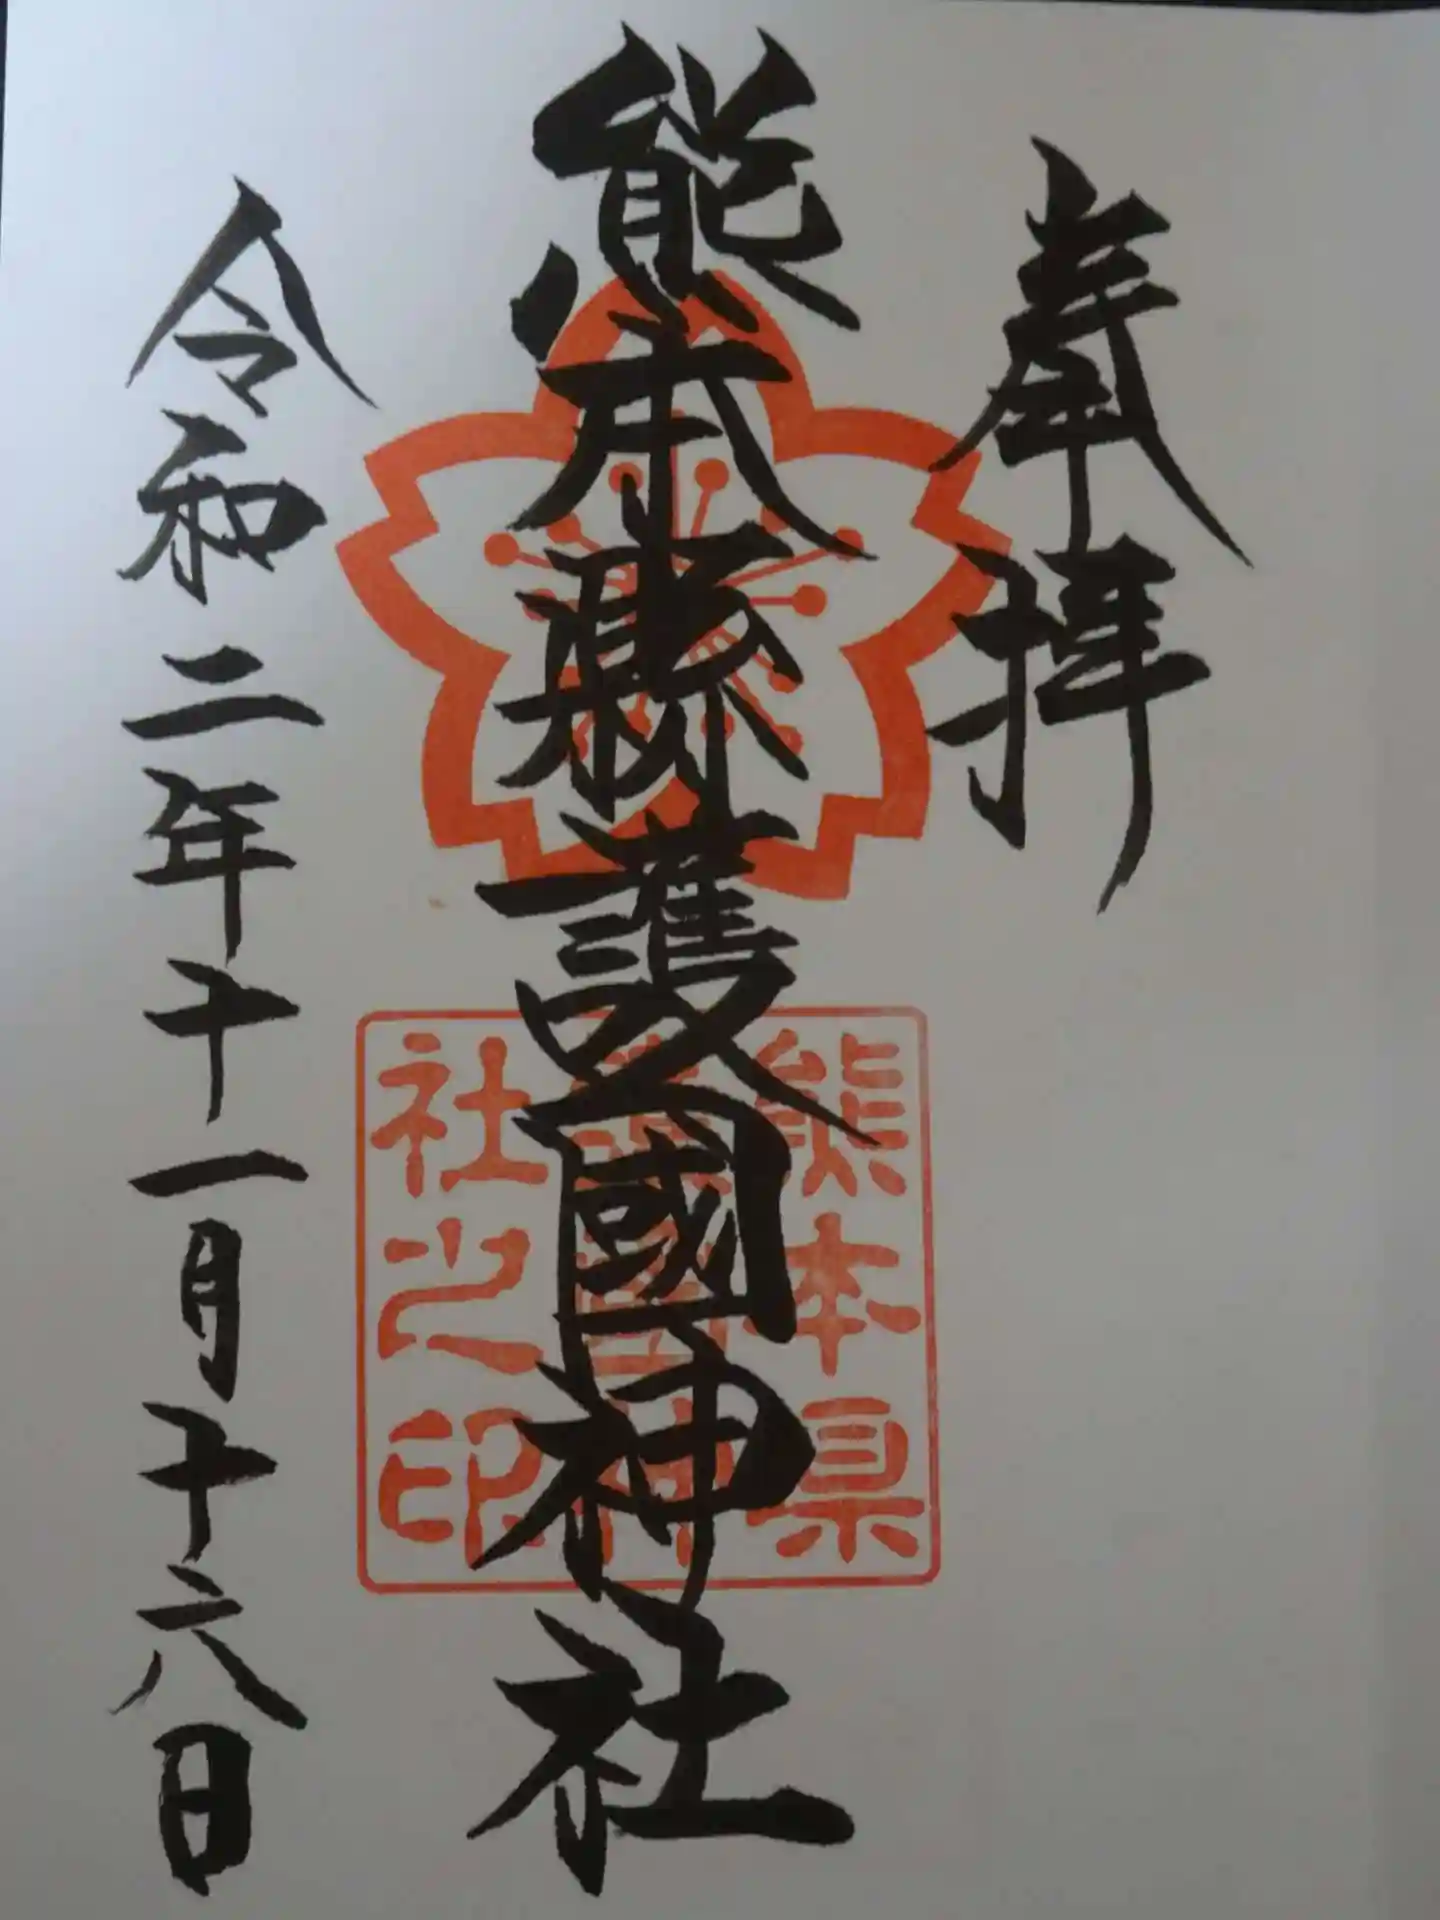 奉拝
熊本縣護國神社
令和二年十一月十六日
熊本県
護國神
社之印